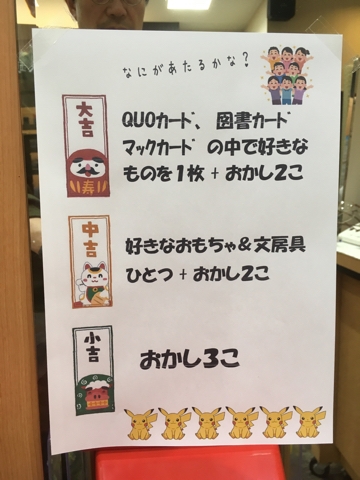 なにがあたるかな?
大吉
QUOカード、図書カード
マックカード の中で好きな
ものを1枚 + おかし2こ
寿
中吉
好きなおもちゃ&文房具
ひとつ + おかし2こ
小吉
おかし3こ